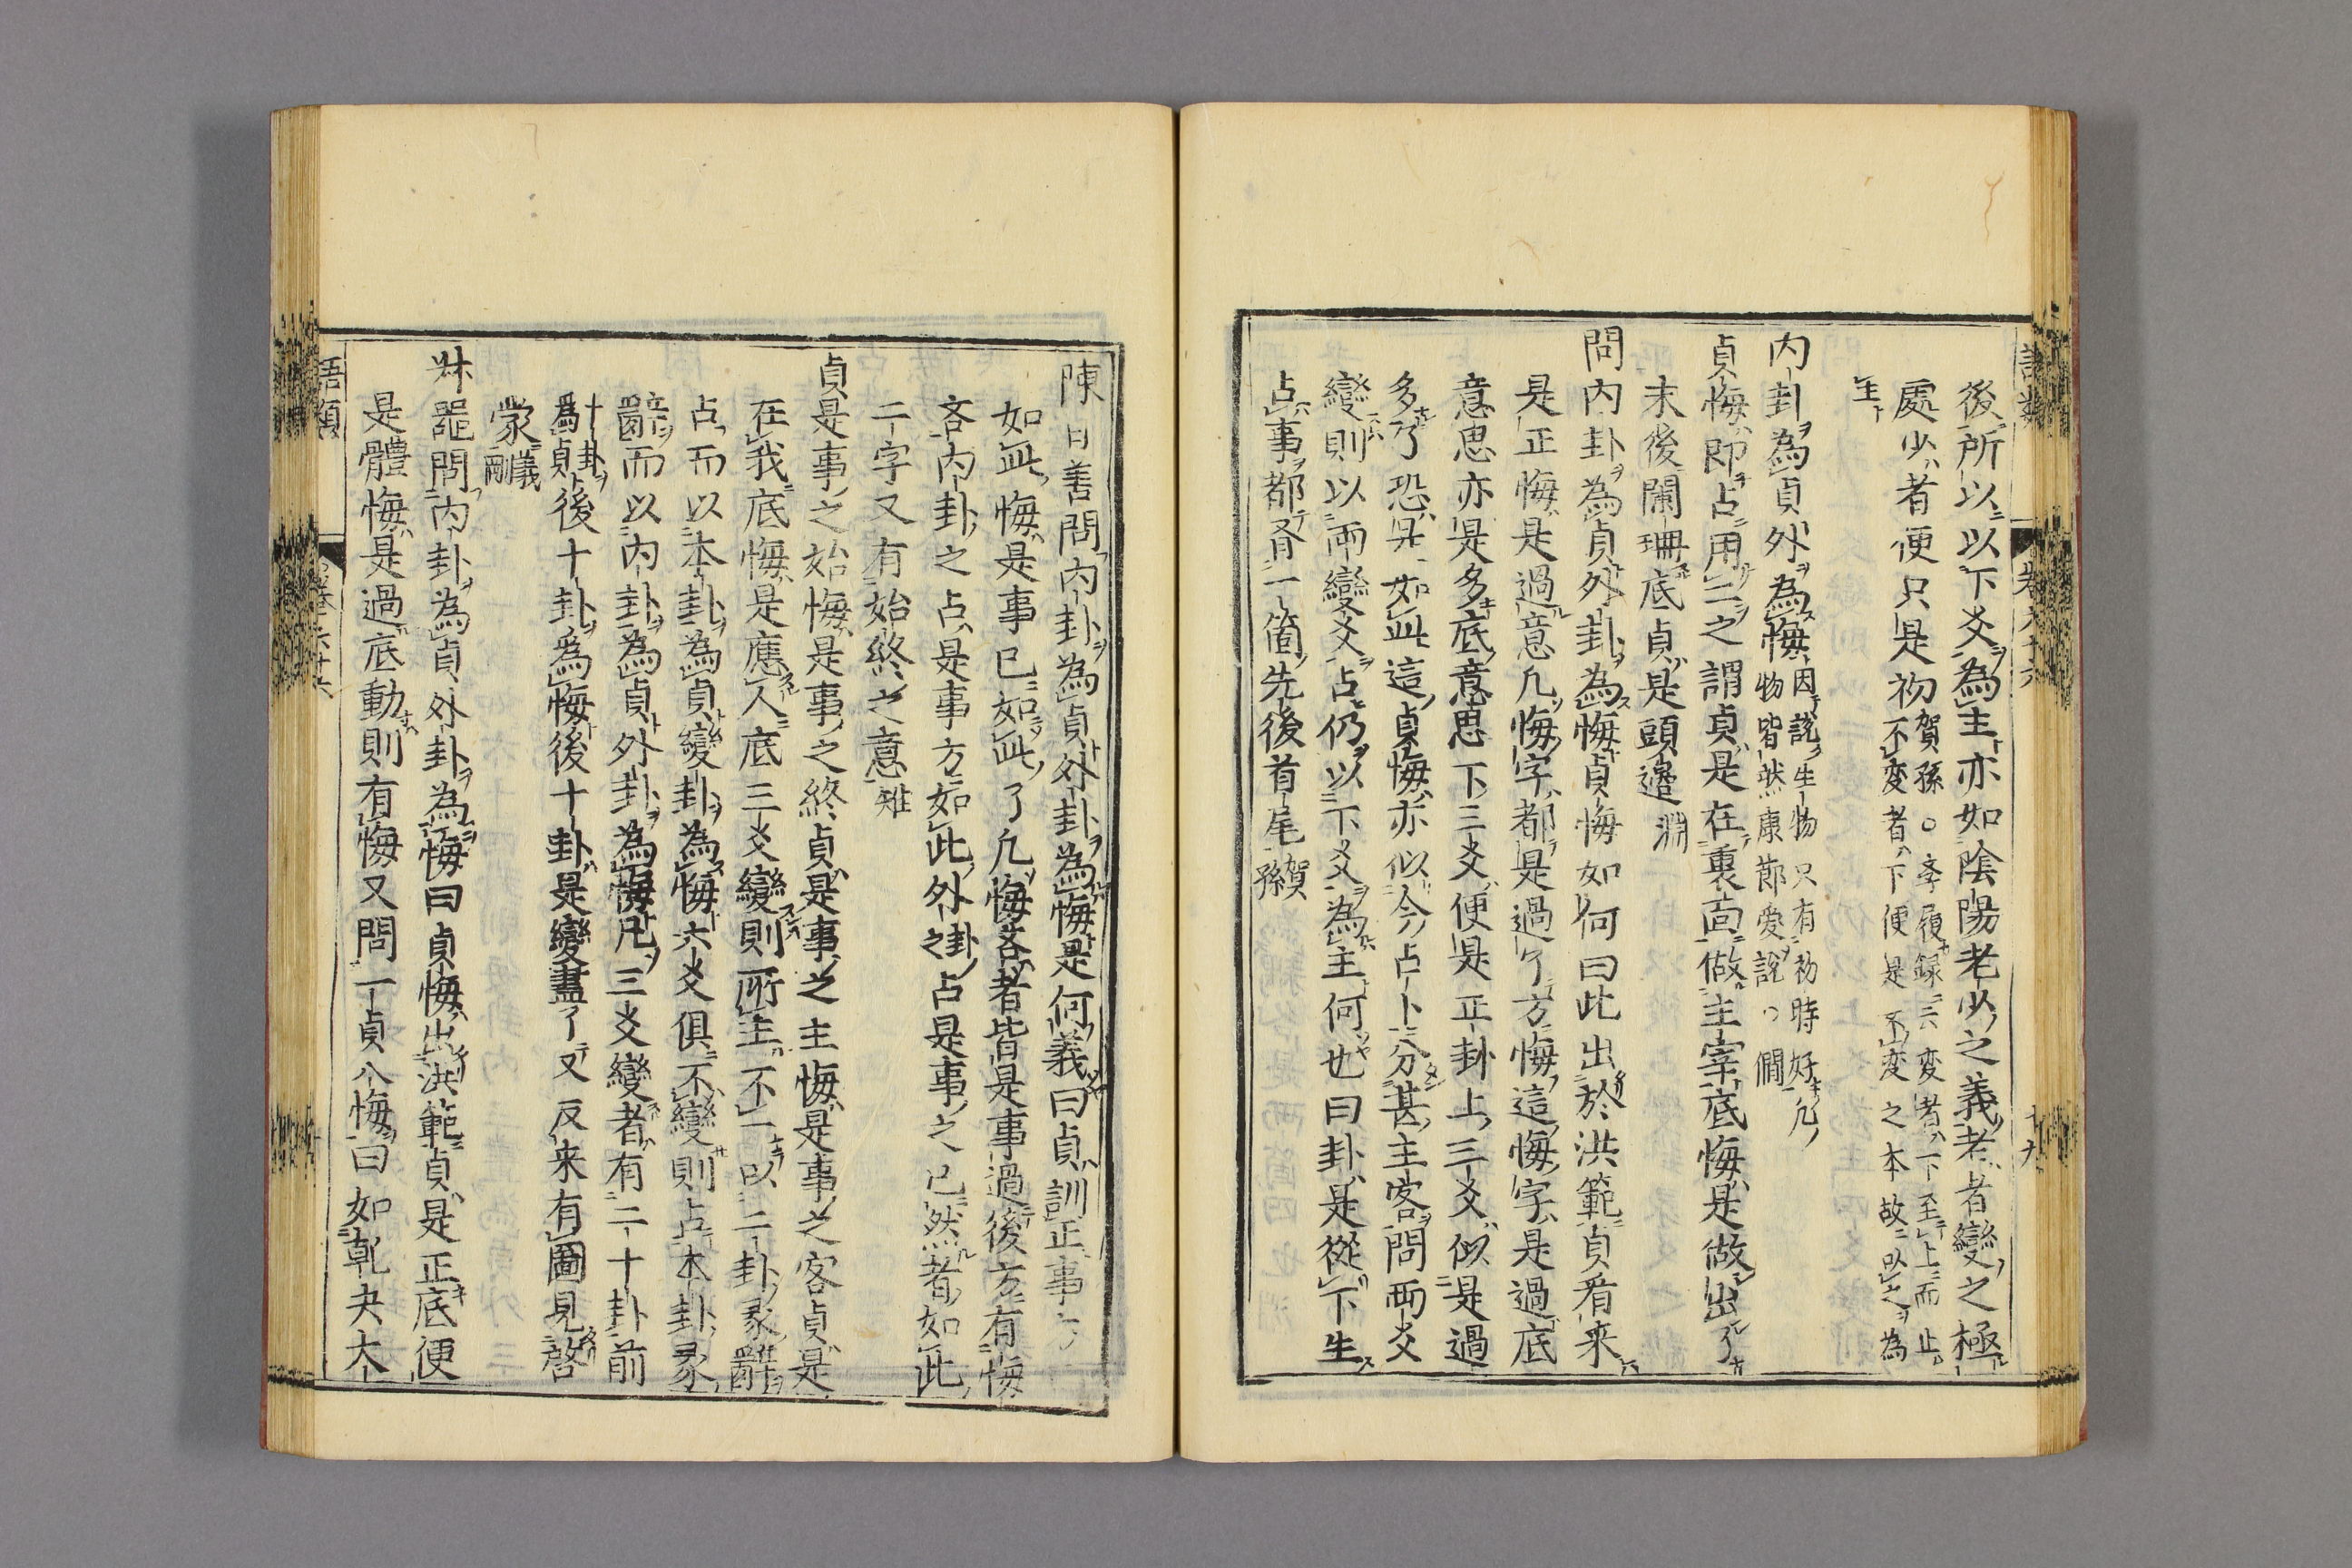 後所以以下爻為主亦如陰陽老少之義老者變之極
處少者便只是初賀孫○李履録云変者下至上而止
不変者下便是不変之本故以之為
主
内卦為貞外為悔因說生物只有初時好凡
物皆然康節愛說○僩
貞悔即占用二之謂貞是在裏面做主宰底悔是做出了
末後闌珊底貞是頭邊淵
問内卦為貞外卦為悔貞悔如何曰此出於洪範貞看来
是正悔是過意凡悔字都是過了方悔這悔字是過底
意思亦是多底意思下三爻便是正卦上三爻似是過
多了恐是如此這貞悔亦似今占卜分甚主客問兩爻
變則以兩變爻占仍以下爻為主何也曰卦是從下生
占事都有一箇先後首尾賀孫
陳曰善問内卦為貞外卦為悔是何義曰貞訓正事
如此悔是事已如此了凡悔吝者皆是事過後方有悔
吝内卦之占是事方如此外卦之占是事之已然者如此
二字又有始終之意雉
貞是事之始悔是事之終貞是事之主悔是事之客貞是
在我底悔是應人底三爻變則所主不一以二卦彖辭
占而以本卦為貞變卦為悔六爻俱不變則占本卦彖
辭而以内卦為貞外卦為悔凡三爻變者有二十卦前
十卦為貞後十卦為悔後十卦是變盡了又反来有圖見啓
蒙義剛
叔器問内卦為貞外卦為悔曰貞悔出洪範貞是正底便
是體悔是過底動則有悔又問一貞八悔曰如乾夬大
語類